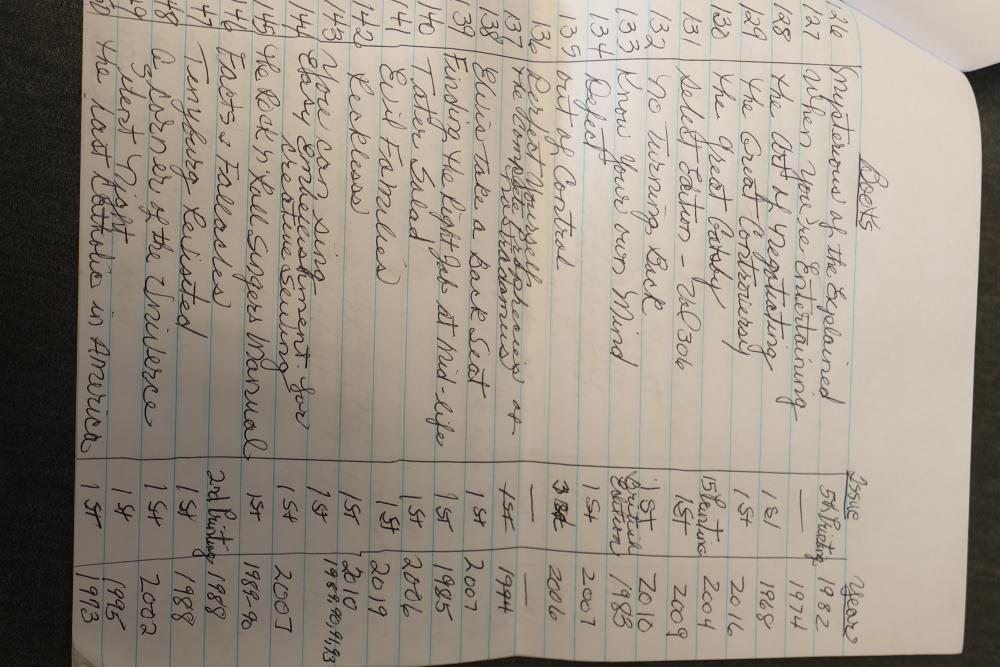 Books Issue Year
126 Mysterious of the Explained 5th Printing 1982
127 When you're Entertaining — 1974
128 The Art of Negotiating 1st 1968
129 The Great Controversy 1st 2016
130 The Great Gatsby 15 Printing 2004
131 Edition - 306 1st 2009
132 No Turning Back 1st 2010
133 Know Your own Mind British Edition 1983
134 Defect 1st 2007
135 Out of Control 3rd 2006
136 Yourself — —
137 The Complete Prophecies of Nostradamus 1st 1994
138 Elvis take a back Seat 1st 2007
139 Finding the Right Job at Mid-life 1st 1985
140 Tater Salad 1st 2006
141 Evil Families 1st 2019
142 Reckless 1st 2010
143 You can sing 1st 1989,90,91,93
144 Easy Embellishment for Creative Sewing 1st 2007
145 The Rock'n Roll Singers Manual 1st 1989-90
146 Facts & Fallacies 2nd Printing 1988
147 Tenyburg Revisited 1st 1988
148 A Corner of the Universe 1st 2002
149 Silent Night 1st 1995
150 The Last Catholic in America 1st 1973